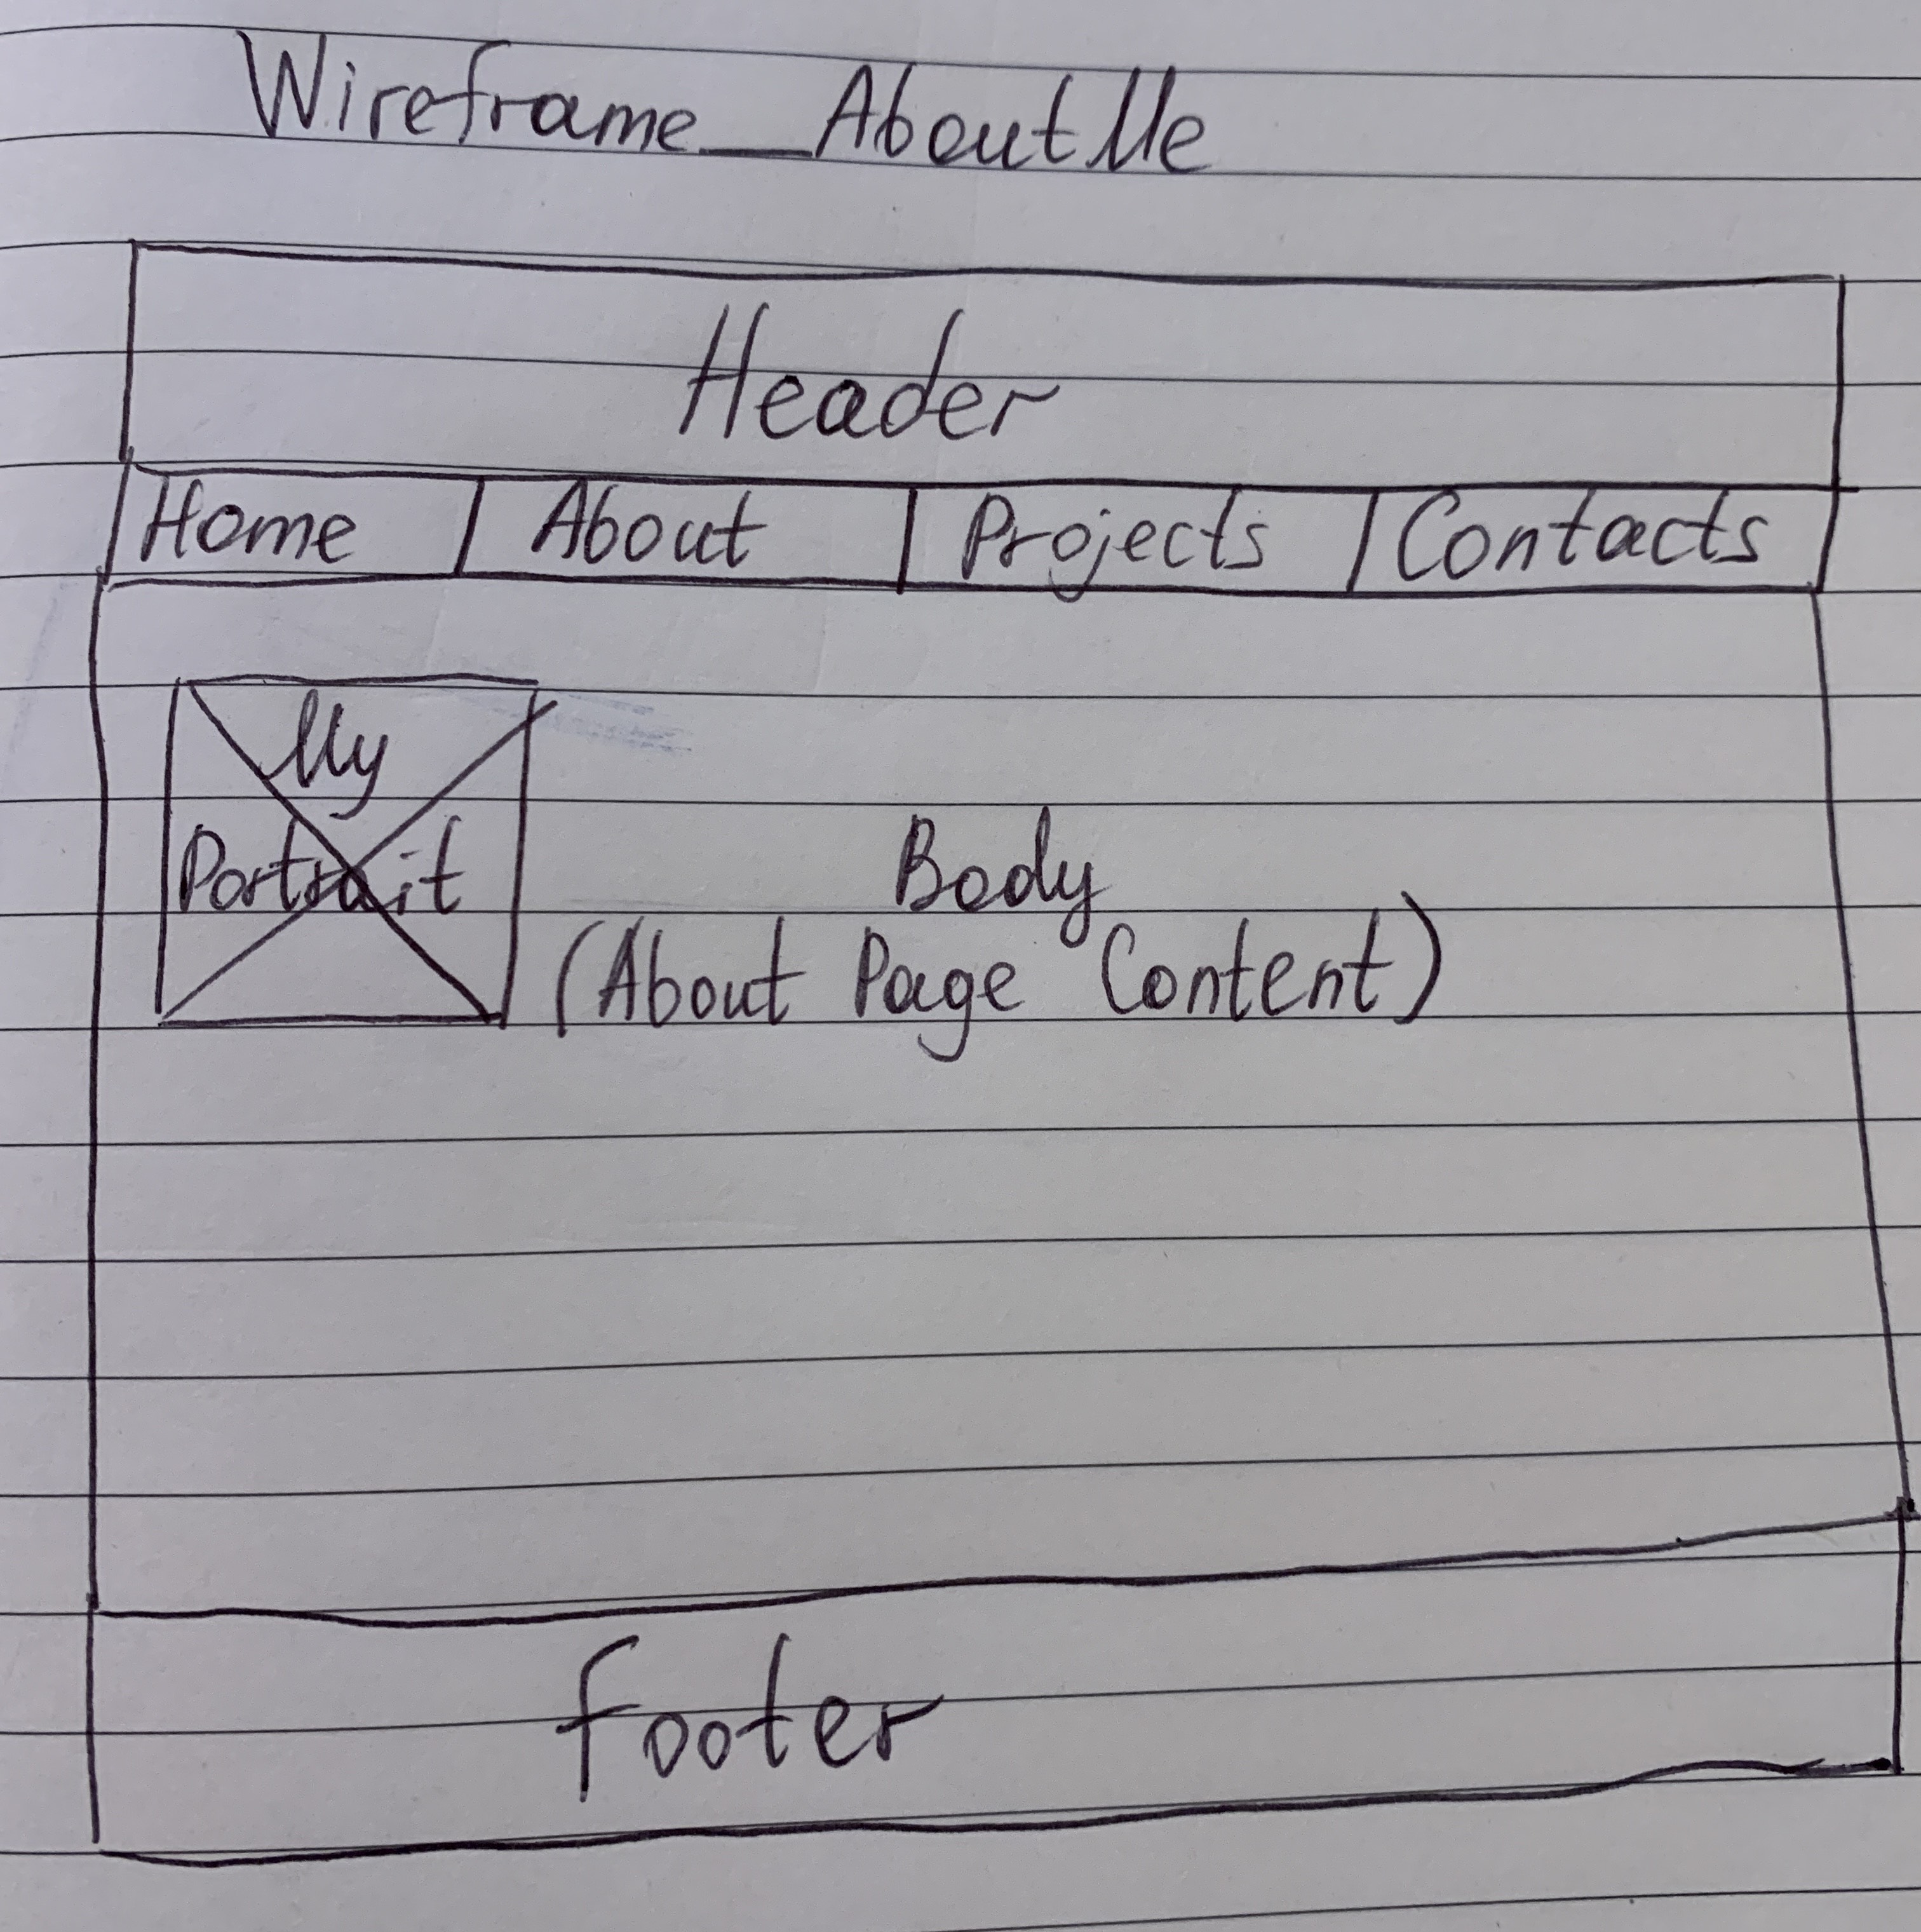 Wireframe_AboutMe
Header
Home | About | Projects | Contacts
My
Portrait
Body
(About Page Content)
footer